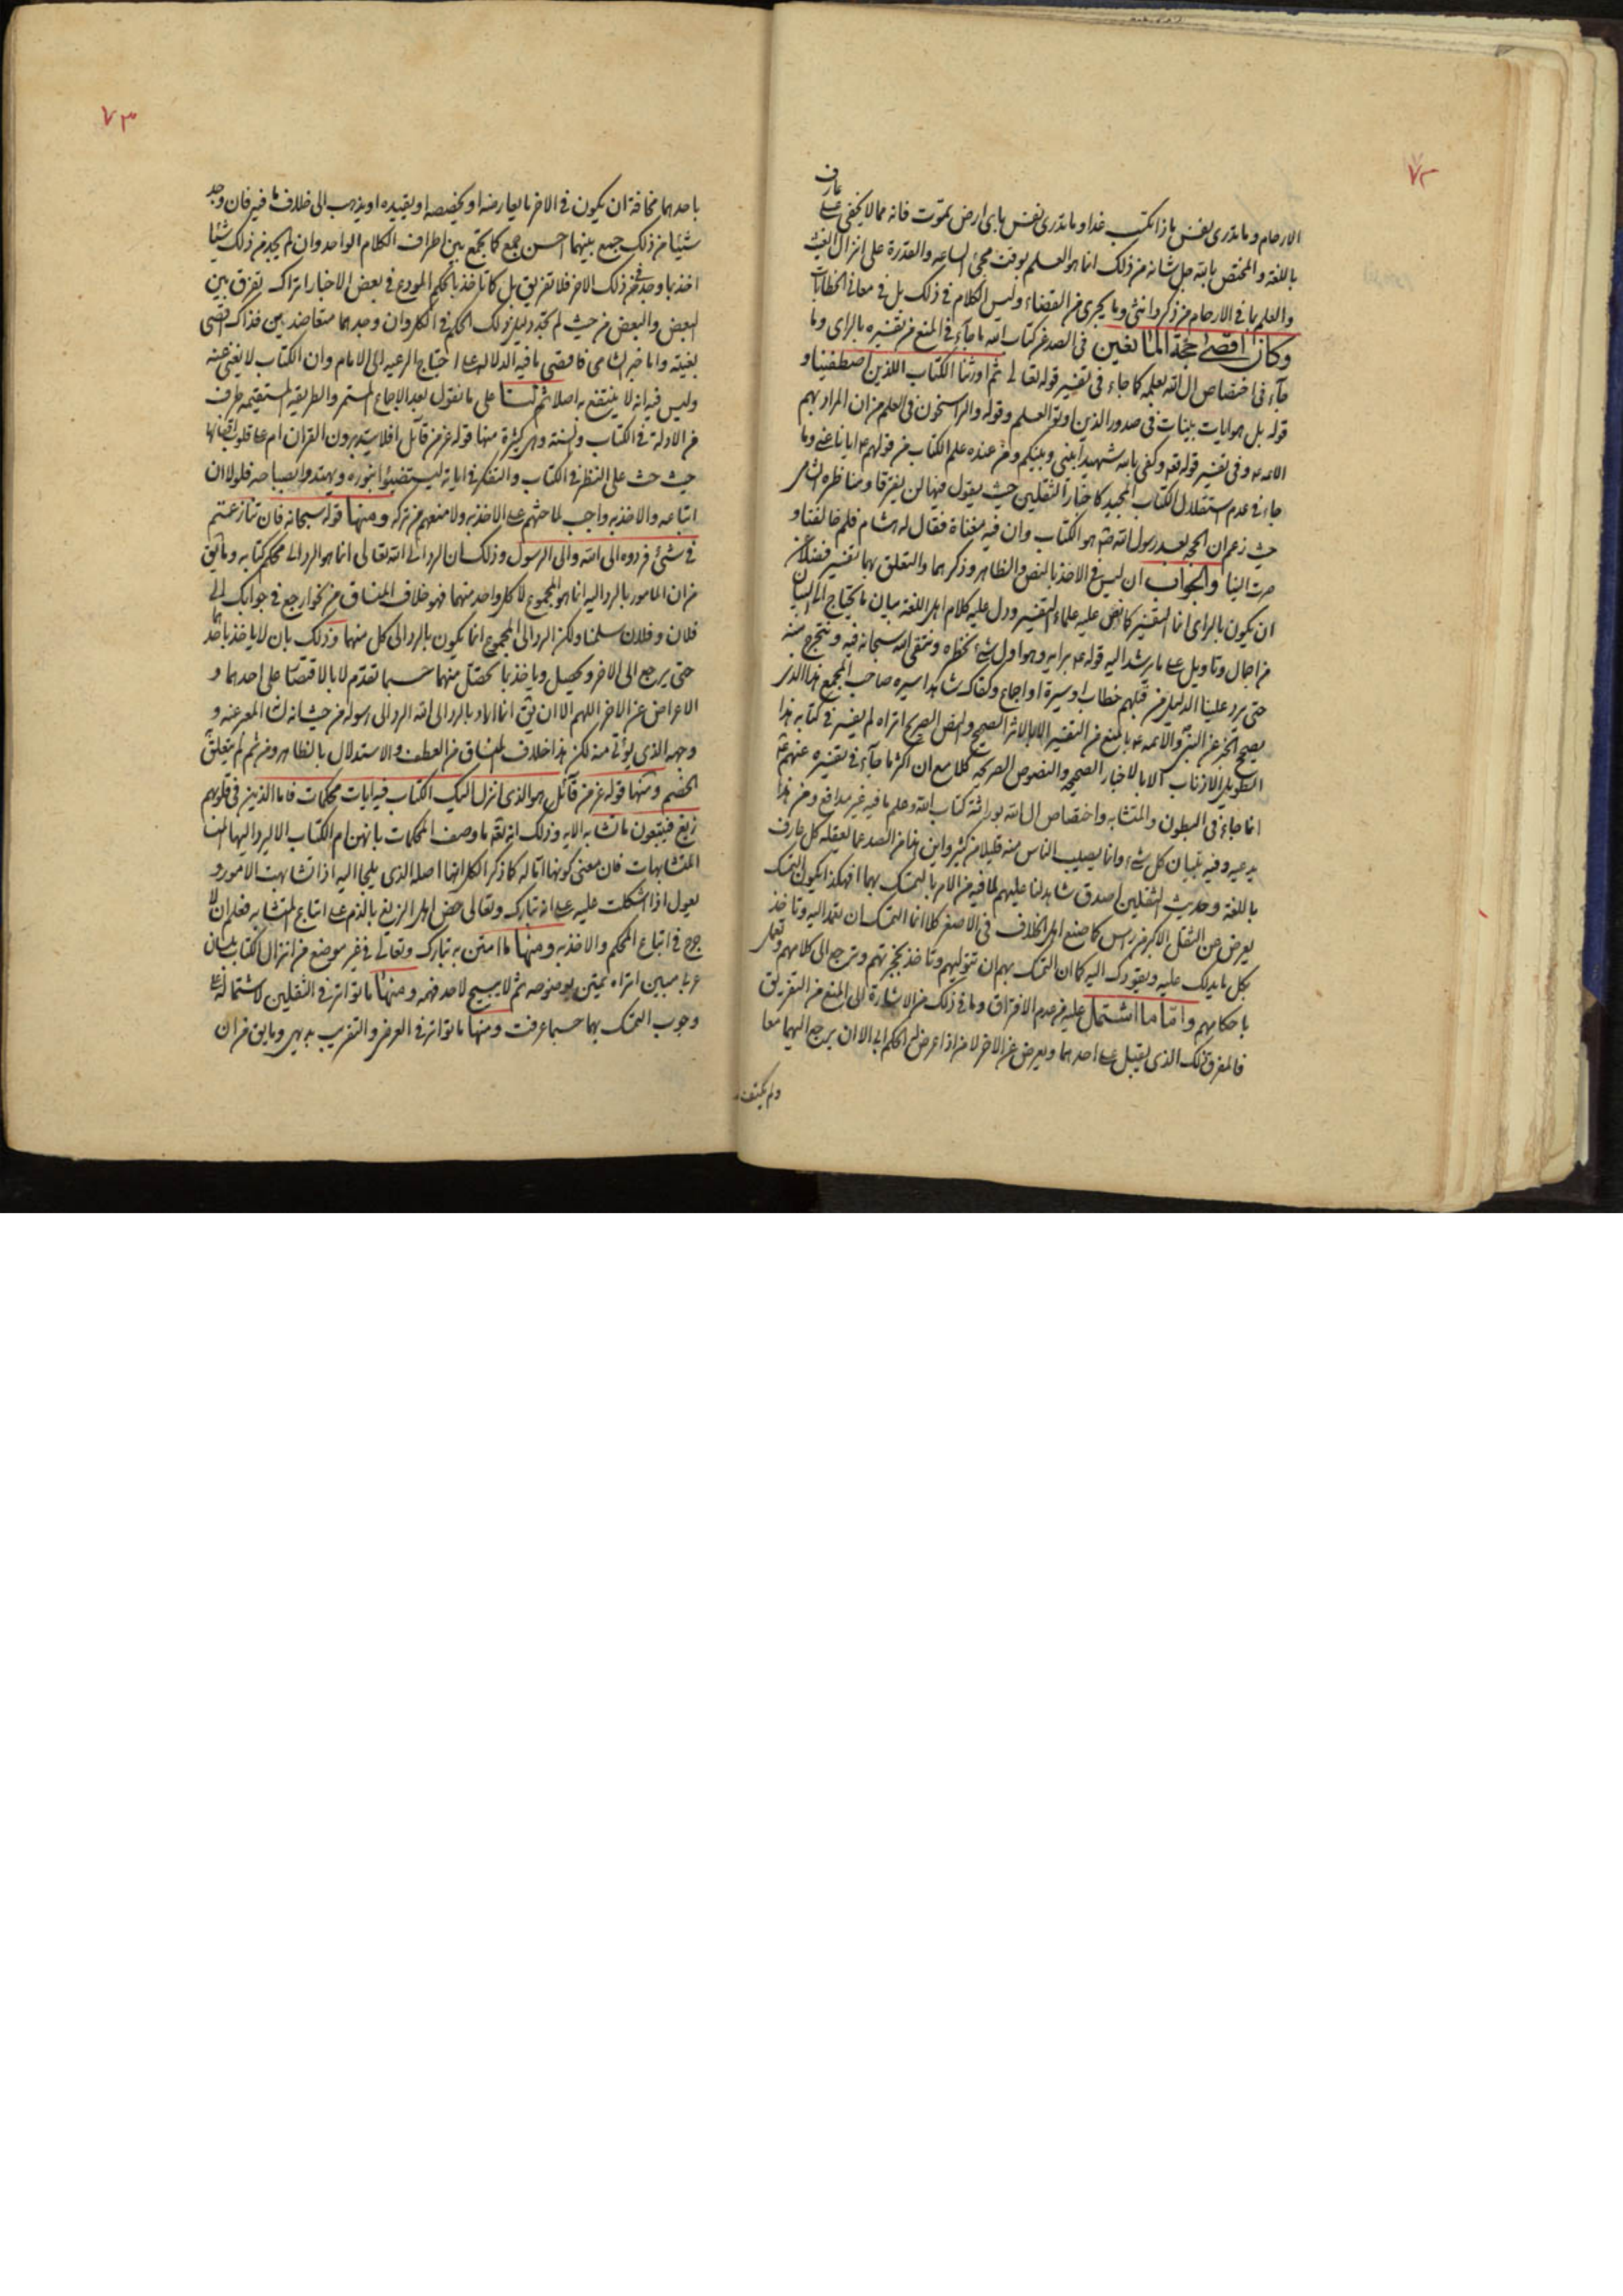 ٧٢
عارف
الارحام وما تدرى نفس ماذا تكسب غدا وما تدرى نفس باى ارض تموت فانه مما لا يخفى على
باللغة والمختص بالله جل شانه من ذلك انما هو العلم بوقت مجئ الساعه والقدرة على انزال الغيث
والعلم بما فى الارحام من ذكر وانثى وما يجرى من القضاء وليس الكلام فى ذلك بل فى معانى الخطابات
وكان اقصى حجة المانعين فى الصد عن كتاب الله ما جاء فى المنع من تفسيره بالراى وما
جاء فى اختصاص ال الله بعلمه كما جاء فى تفسير قوله تعالى ثم اورثنا الكتاب الذين اصطفينا و
قوله بل هو ايات بينات فى صدور الذين اوتوا العلم وقوله والراسخون فى العلم من ان المراد بهم
الائمه ع وفى تفسير قوله تعه وكفى بالله شهيدا بينى وبينكم ومن عنده علم الكتاب من قولهم ع ايانا عنى وما
جاء فى عدم استقلال الكتاب المجيد كاخبار الثقلين حيث يقول فيها لن يفترقا ومناظره الشامى
حيث زعم ان الحجه بعد رسول الله ص هو الكتاب وان فيه مغناة فقال له هشام فلم خالفتنا و
صرت الينا والجواب ان ليس فى الاخذ بالنص والظاهر وذكرهما والتعلق بهما تفسير فضلا عن
ان يكون بالراى انما التفسير كما نص عليه علماء التفسير ودل عليه كلام اهل اللغة بيان ما يحتاج الى البيان
من اجمال وتاويل على ما يرشد اليه قوله ع برايه وهو اول شئ نحظره ونتقى الله سبحانه فيه ونتحرج منه
حتى يرد علينا الدليل من قبلهم خطاب او سيرة او اجماع وكفاك شاهدا سيره صاحب المجمع هذا الذى
يصحح الخبر عن النبى والائمه ع بالمنع من التفسير الا بالاثر الصحيح والنص الصريح اتراه لم يفسر فى كتابه هذا
الطويل الاذناب الا بالاخبار الصحيحه والنصوص الصريحه كلا مع ان اكثر ما جاء فى تفسيره عنهم ع
انما جاء فى البطون والمتشابه واختصاص ال الله بوراثة كتاب الله وعلم ما فيه غير مدافع ومن ذا
يدعيه وفيه تبيان كل شئ وانما يصيب الناس منه قليلا من كثير واين هذا من الصد عما يعقله كل عارف
باللغة وحديث الثقلين اصدق شاهد لنا عليهم لما فيه من الامر بالتمسك بهما افهكذا يكون التمسك
يعرض عن الثقل الاكبر من راس كما صنع اهل الخلاف فى الاصغر كلا انما التمسك ان تعمد اليه وتاخذ
بكل ما يدلك عليه ويقودك اليه كما ان التمسك بهم ان تتوليهم وتاخذ بحجزتهم وترجع الى كلامهم وتعمل
باحكامهم واما ما اشتمل عليه من عدم الافتراق وما فى ذلك من الاشارة الى المنع من التفريق
فالمفرق ذلك الذى يقبل على احدهما ويعرض عن الاخر لا من اذا عرض له الحكم ابى الا ان يرجع اليهما معا
ولم يكتف
٧٣
باحدهما مخافة ان يكون فى الاخر ما يعارضه او يخصصه او يقيده او يذهب الى خلاف ما فيه فان وجد
شيئا من ذلك جمع بينهما احسن جمع كما يجمع بين اطراف الكلام الواحد وان لم يجد من ذلك شيئا
اخذ بما وجد فى ذلك الاخر فلا تفريق بل كما تاخذ بالحكم المودع فى بعض الاخبار اتراك تفرق بين
البعض والبعض من حيث لم تجد دليل ذلك الحكم فى الكل وان وجدهما متعاضدين فذاك اقصى
بغيته واما خبر الشامى فاقصى ما فيه الدلاله على احتياج الرعيه الى الامام وان الكتاب لا يغنى عنه
وليس فيه انه لا ينتفع به اصلا ثم لنا على ما نقول بعد الاجماع المستمر والطريقه المستقيمه طرف
من الادلة فى الكتاب والسنة وهى كثيرة منها قوله عز من قائل افلا يتدبرون القران ام على قلوب اقفالها
حيث حث على النظر فى الكتاب والتفكر فى اياته ليستضيئوا بنوره ويهتدوا بمصباحه فلولا ان
اتباعه والاخذ به واجب لما حثهم على الاخذ به ولا منعهم من تركه ومنها قوله سبحانه فان تنازعتم
فى شئ فردوه الى الله والى الرسول وذلك ان الرد الى الله تعالى انما هو الرد الى محكم كتابه وما يق
من ان المامور بالرد اليه انما هو المجموع لا كل واحد منهما فهو خلاف المنساق من نحو ارجع فى جوابك الى
فلان وفلان سلمنا ولكن الرد الى المجموع انما يكون بالرد الى كل منهما وذلك بان لا ياخذ باحدهما
حتى يرجع الى الاخر ويحصل وياخذ بما تحصل منهما حسبما تقدم لا بالاقتصار على احدهما و
الاعراض عن الاخر اللهم الا ان يق انما اراد بالرد الى الله الرد الى رسوله من حيث انه المعبر عنه و
وجهه الذى يؤتى منه لكن هذا خلاف المنساق من العطف والاستدلال بالظاهر ومن ثم لم يتعلق
الخصم ومنها قوله عز من قائل هو الذى انزل اليك الكتاب فيه ايات محكمات فاما الذين فى قلوبهم
زيغ فيتبعون ما تشابه الايه وذلك انه تعه ما وصف المحكمات بانهن ام الكتاب الا ليرد اليها
المتشابهات فان معنى كونها اما له كما ذكر الكل انها اصله الذى يلجا اليه اذا تشابهت الامور و
يعول اذا اشكلت عليه على انه تبارك وتعالى خص اهل الزيغ بالذم على اتباع المتشابه فعلم ان لا
حرج فى اتباع المحكم والاخذ به ومنها ما امتن به تبارك وتعالى فى غير موضع من انزال الكتاب بلسان
عربى مبين اتراه يمتن بوضوحه ثم لا يبيح لاحد فهمه ومنها ما تواتر فى الثقلين لاشتماله على
وجوب التمسك بهما حسبما عرفت ومنها ما تواتر فى العرض والتقريب بديهى وما يق من ان